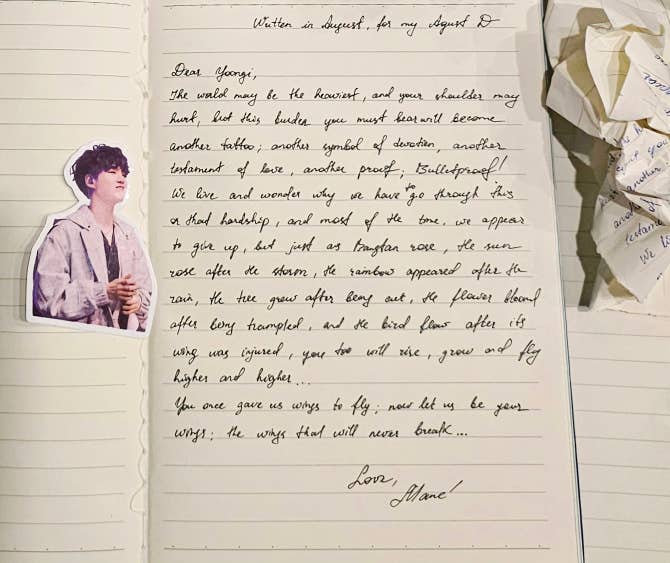 Written in August, for my Agust D
Dear Yoongi,
The world may be the heaviest, and your shoulder may
hurt, but this burden you must bear will become
another tattoo; another symbol of devotion, another
testament of love, another proof; Bulletproof!
We live and wonder why we have to go through this
or that hardship, and most of the time, we appear
to give up, but just as Bangtan rose, the sun
rose after the storm, the rainbow appeared after the
rain, the tree grew after being cut, the flower bloomd
after being trampled, and the bird flow after its
wing was injured, you too will rise, grow and fly
higher and higher...
You once gave us wings to fly; now let us be your
wings; the wings that will never break...
Love,
another
testam
We li